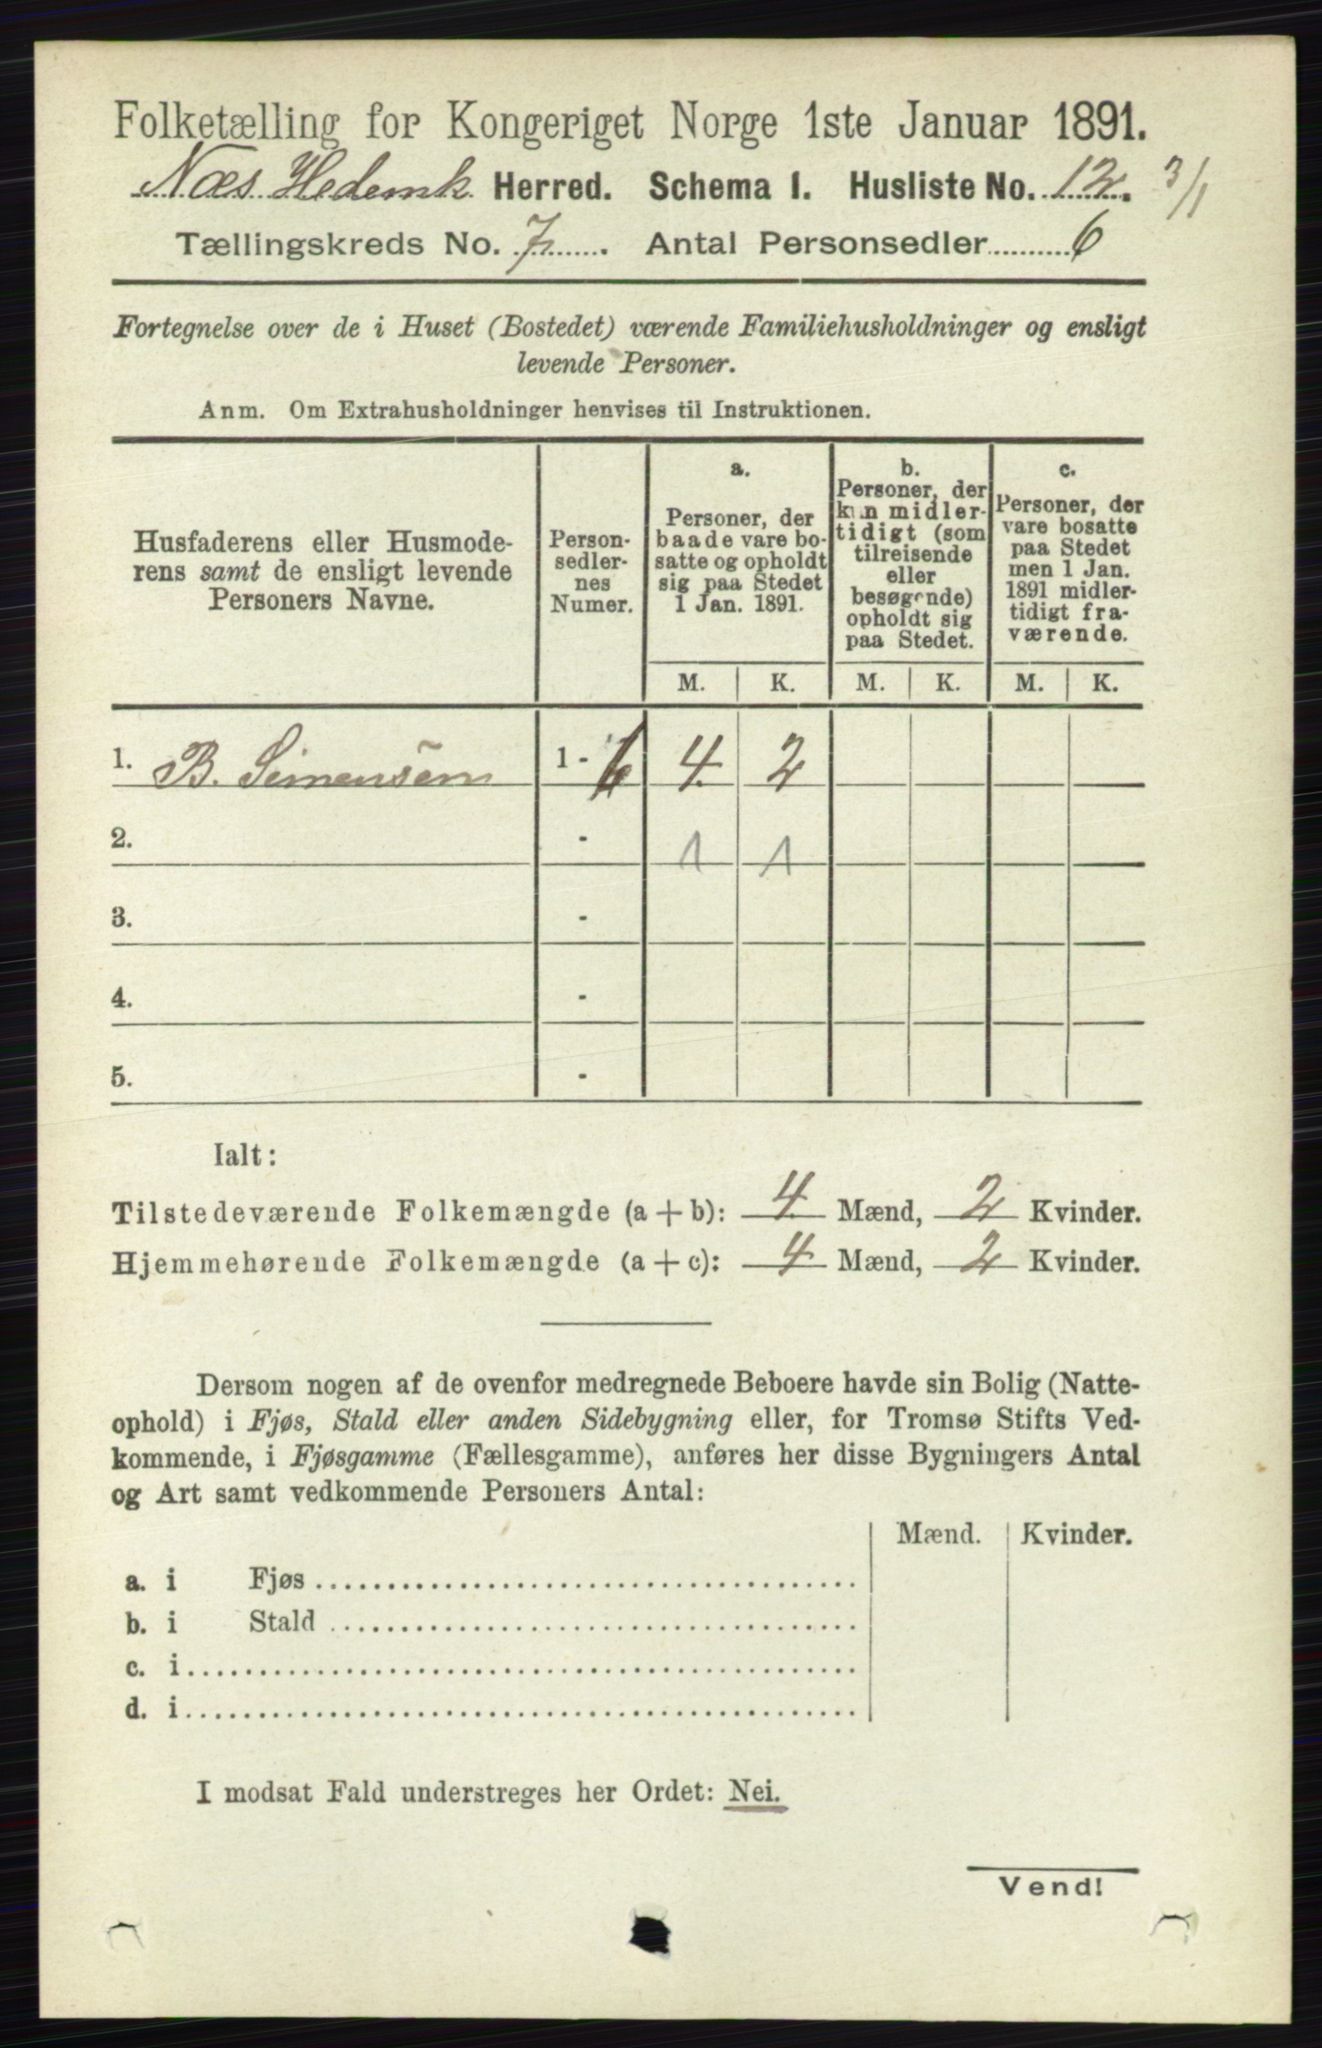 Folketælling for Kongeriget Norge 1ste Januar 1891.
Næs Hedemk Herred. Schema I. Husliste No. 12. 3/1
Tællingskreds No. 7. Antal Personsedler 6
Fortegnelse over de i Huset (Bostedet) værende Familiehusholdninger og ensligt
levende Personer.
Anm. Om Extrahusholdninger henvises til Instruktionen.
Husfaderens eller Husmode-
rens samt de ensligt levende
Personers Navne.
Person-
sedler-
nes
Numer.
a.
Personer, der
baade vare bo-
satte og opholdt
sig paa Stedet
1 Jan. 1891.
b.
Personer, der
kun midler-
tidigt (som
tilreisende
eller
besøgende)
opholdt sig
paa Stedet.
c.
Personer, der
vare bosatte
paa Stedet
men 1 Jan.
1891 midler-
tidigt fra-
værende.
M. K. M. K. M. K.
1. B. Simensen 1 - 6 4 2
2. - 1 1
3. -
4. -
5. -
Ialt:
Tilstedeværende Folkemængde (a + b): 4 Mænd, 2 Kvinder.
Hjemmehørende Folkemængde (a + c): 4 Mænd, 2 Kvinder.
Dersom nogen af de ovenfor medregnede Beboere havde sin Bolig (Natte-
ophold) i Fjøs, Stald eller anden Sidebygning eller, for Tromsø Stifts Ved-
kommende, i Fjøsgamme (Fællesgamme), anføres her disse Bygningers Antal
og Art samt vedkommende Personers Antal:
Mænd. Kvinder.
a. i Fjøs
b. i Stald
c. i
d. i
I modsat Fald understreges her Ordet: Nei.
Vend!